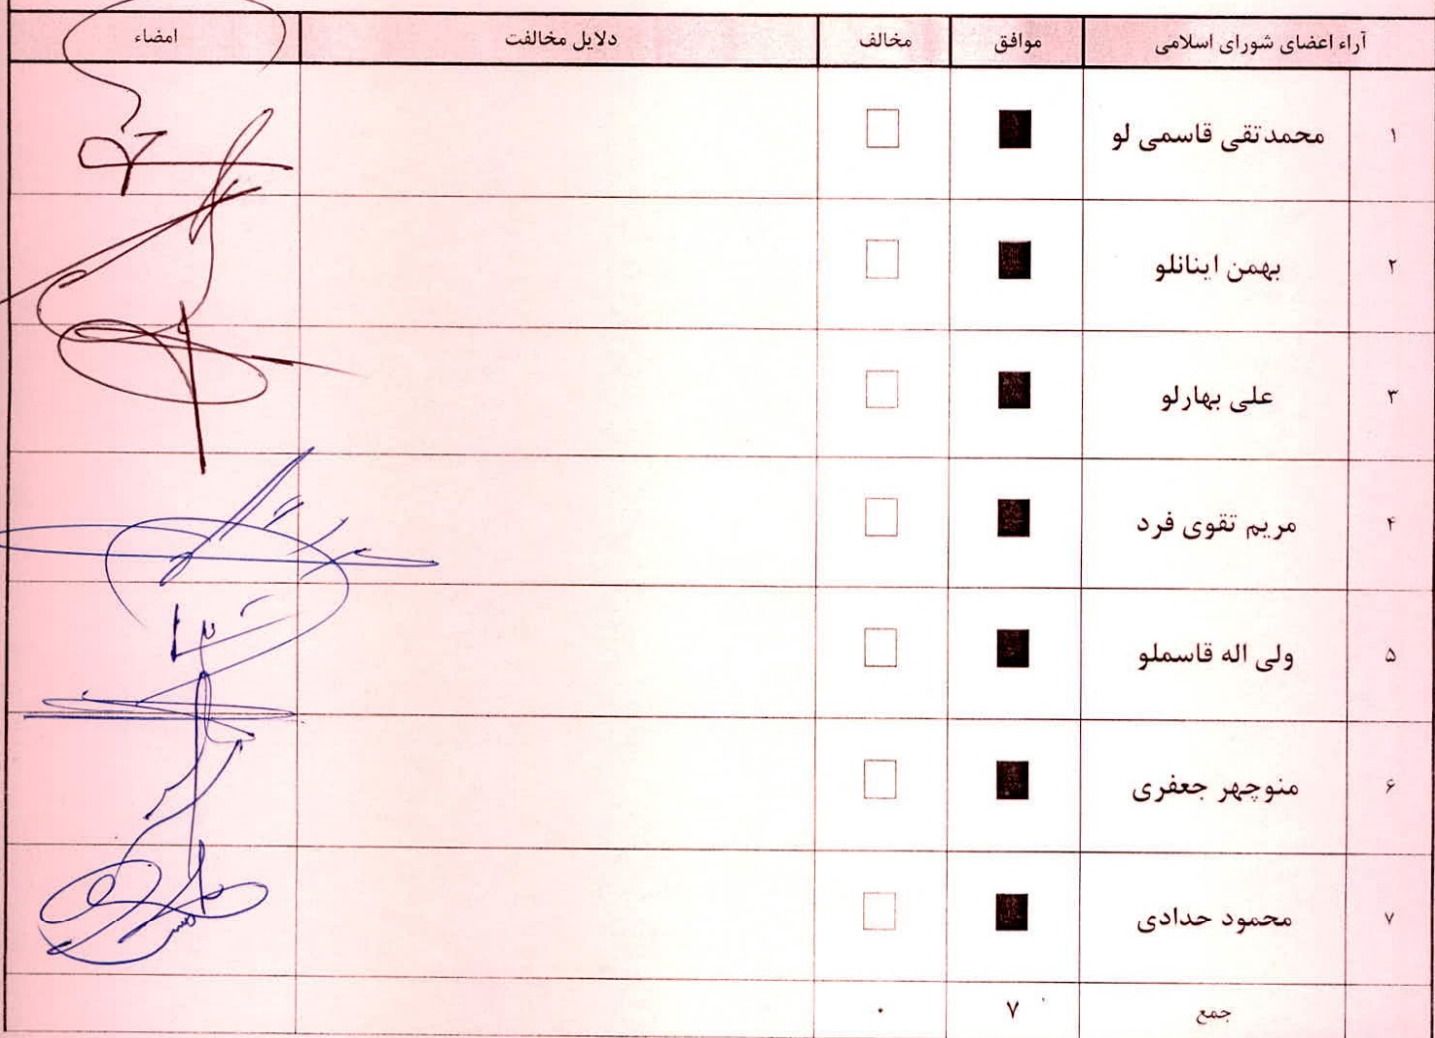 آراء اعضای شورای اسلامی موافق مخالف دلایل مخالفت امضاء
۱ محمدتقی قاسمی لو
۲ بهمن اینانلو
۳ علی بهارلو
۴ مریم تقوی فرد
۵ ولی اله قاسملو
۶ منوچهر جعفری
۷ محمود حدادی
جمع ۷ ۰